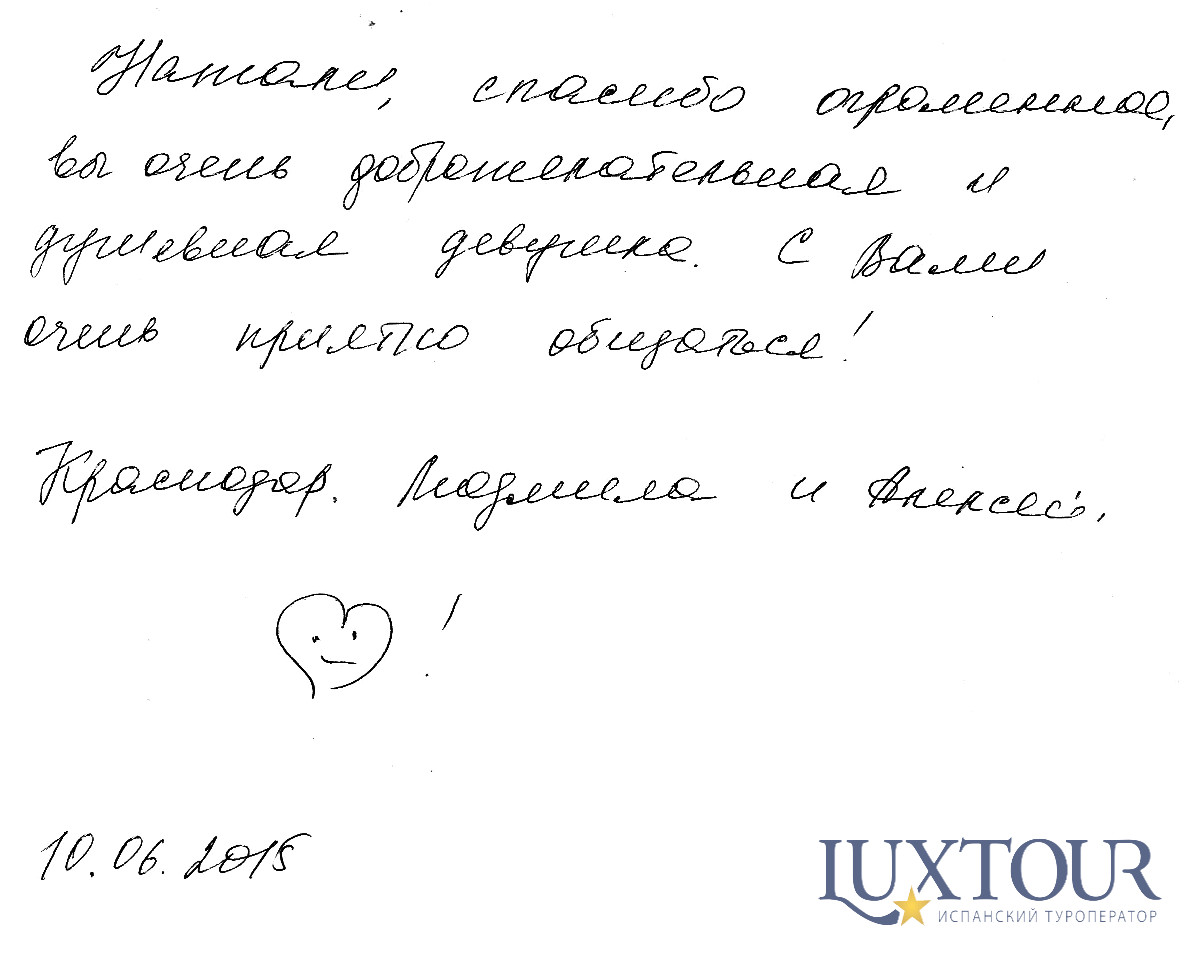 Натали, спасибо огроменное,
вы очень доброжелательная и
душевная девушка. С Вами
очень приятно общаться!
Краснодар. Людмила и Алексей.
!
10.06.2015
LUXTOUR
ИСПАНСКИЙ ТУРОПЕРАТОР